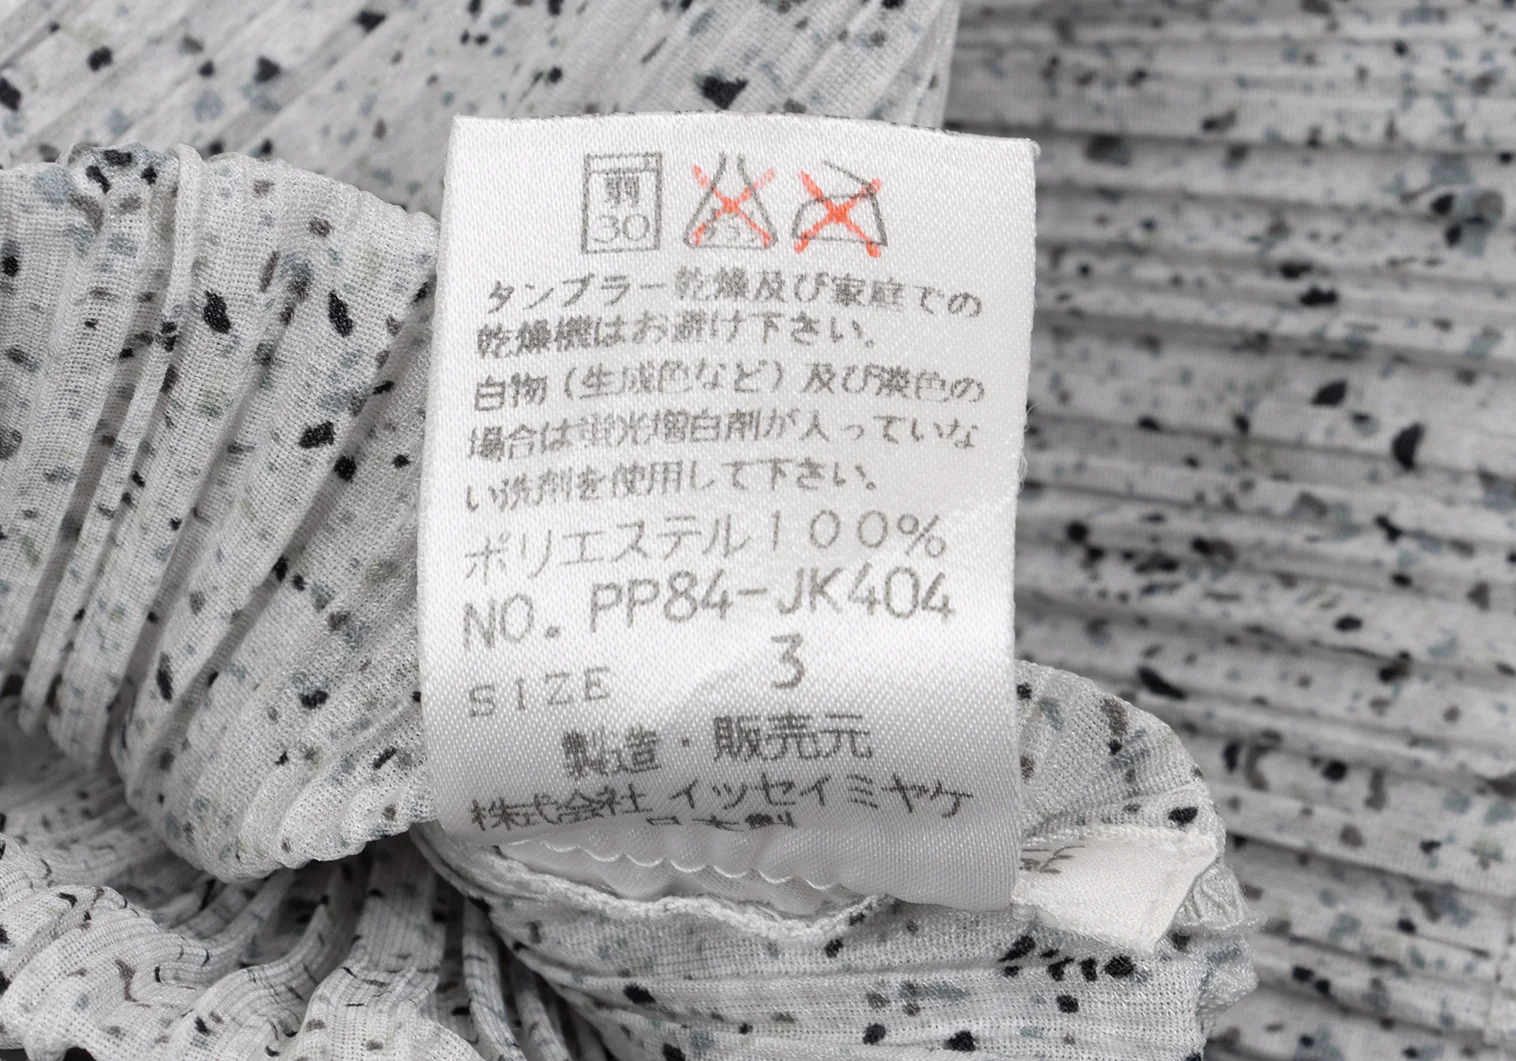 弱
30
タンブラー乾燥及び家庭での
乾燥機はお避け下さい。
白物（生成色など）及び淡色の
場合は蛍光増白剤が入っていな
い洗剤を使用して下さい。
ポリエステル100%
NO. PP84-JK404
SIZE 3
製造・販売元
株式会社 イッセイミヤケ
日本製